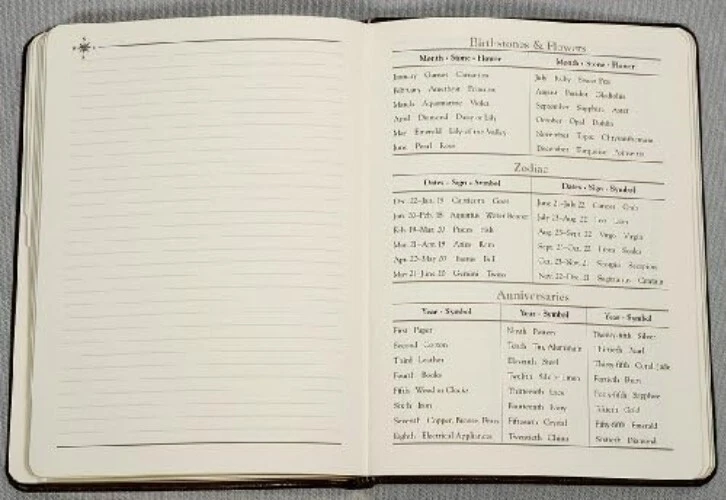 Birthstones & Flowers
Month · Stone · Flower
Month · Stone · Flower
January Garnet Carnation
February Amethyst Primrose
March Aquamarine Violet
April Diamond Daisy or Lily
May Emerald Lily of the Valley
June Pearl Rose
July Ruby Sweet Pea
August Peridot Gladiolus
September Sapphire Aster
October Opal Dahlia
November Topaz Chrysanthemum
December Turquoise Poinsettia
Zodiac
Dates · Sign · Symbol
Dates · Sign · Symbol
Dec. 22–Jan. 19 Capricorn Goat
Jan. 20–Feb. 18 Aquarius Water Bearer
Feb. 19–Mar. 20 Pisces Fish
Mar. 21–Apr. 19 Aries Ram
Apr. 20–May 20 Taurus Bull
May 21–June 20 Gemini Twins
June 21–July 22 Cancer Crab
July 23–Aug. 22 Leo Lion
Aug. 23–Sept. 22 Virgo Virgin
Sept. 23–Oct. 22 Libra Scales
Oct. 23–Nov. 21 Scorpio Scorpion
Nov. 22–Dec. 21 Sagittarius Centaur
Anniversaries
Year · Symbol
Year · Symbol
Year · Symbol
First Paper
Second Cotton
Third Leather
Fourth Books
Fifth Wood or Clocks
Sixth Iron
Seventh Copper, Bronze, Brass
Eighth Electrical Appliances
Ninth Pottery
Tenth Tin, Aluminum
Eleventh Steel
Twelfth Silk or Linen
Thirteenth Lace
Fourteenth Ivory
Fifteenth Crystal
Twentieth China
Twenty-fifth Silver
Thirtieth Pearl
Thirty-fifth Coral, Jade
Fortieth Ruby
Forty-fifth Sapphire
Fiftieth Gold
Fifty-fifth Emerald
Sixtieth Diamond